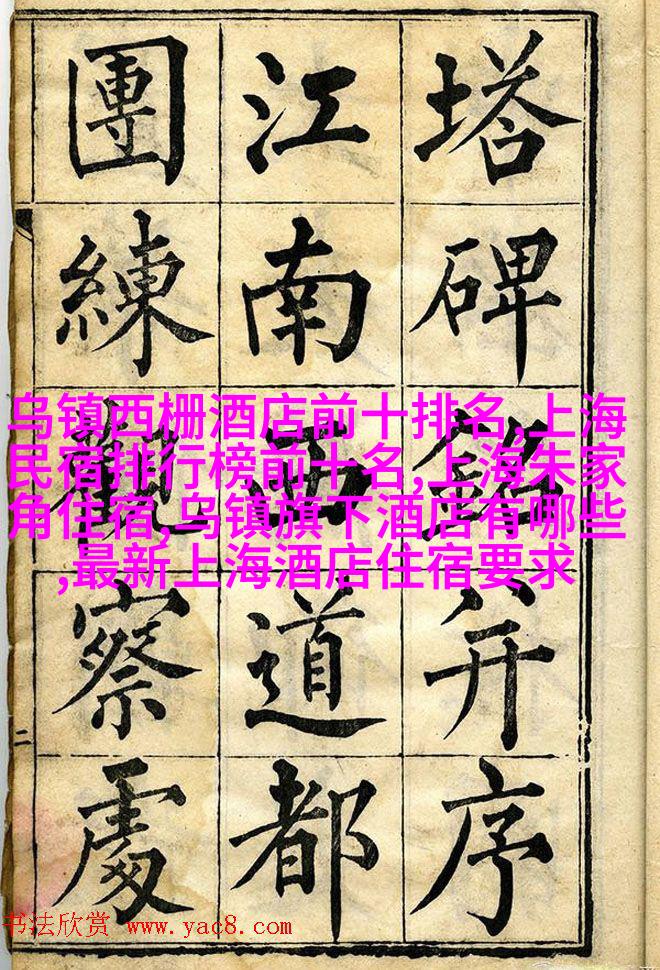 塔碑銘并序
江南西道都
團練觀察處
二
乌镇西栅酒店前十排名,上海
民宿排行榜前十名,上海朱家
角住宿,乌镇旗下酒店有哪些
,最新上海酒店住宿要求
书法欣赏 www.yac8.com